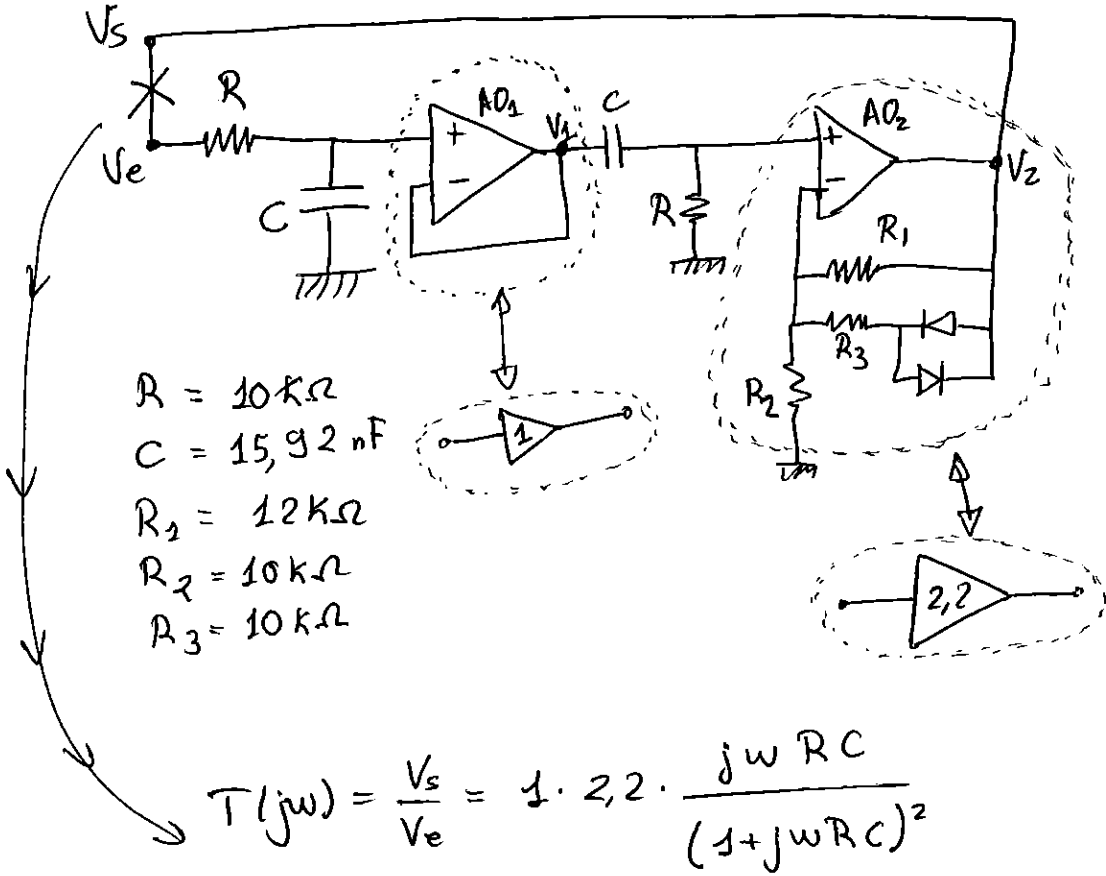 Vs
Ve
R
C
AO₁
+
−
V₁
C
R
AO₂
+
−
V₂
R₁
R₃
R₂
1
2,2
R = 10KΩ
C = 15,92 nF
R₁ = 12KΩ
R₂ = 10KΩ
R₃ = 10KΩ
T(jw) = Vs/Ve = 1 · 2,2 · jwRC/(1+jwRC)²